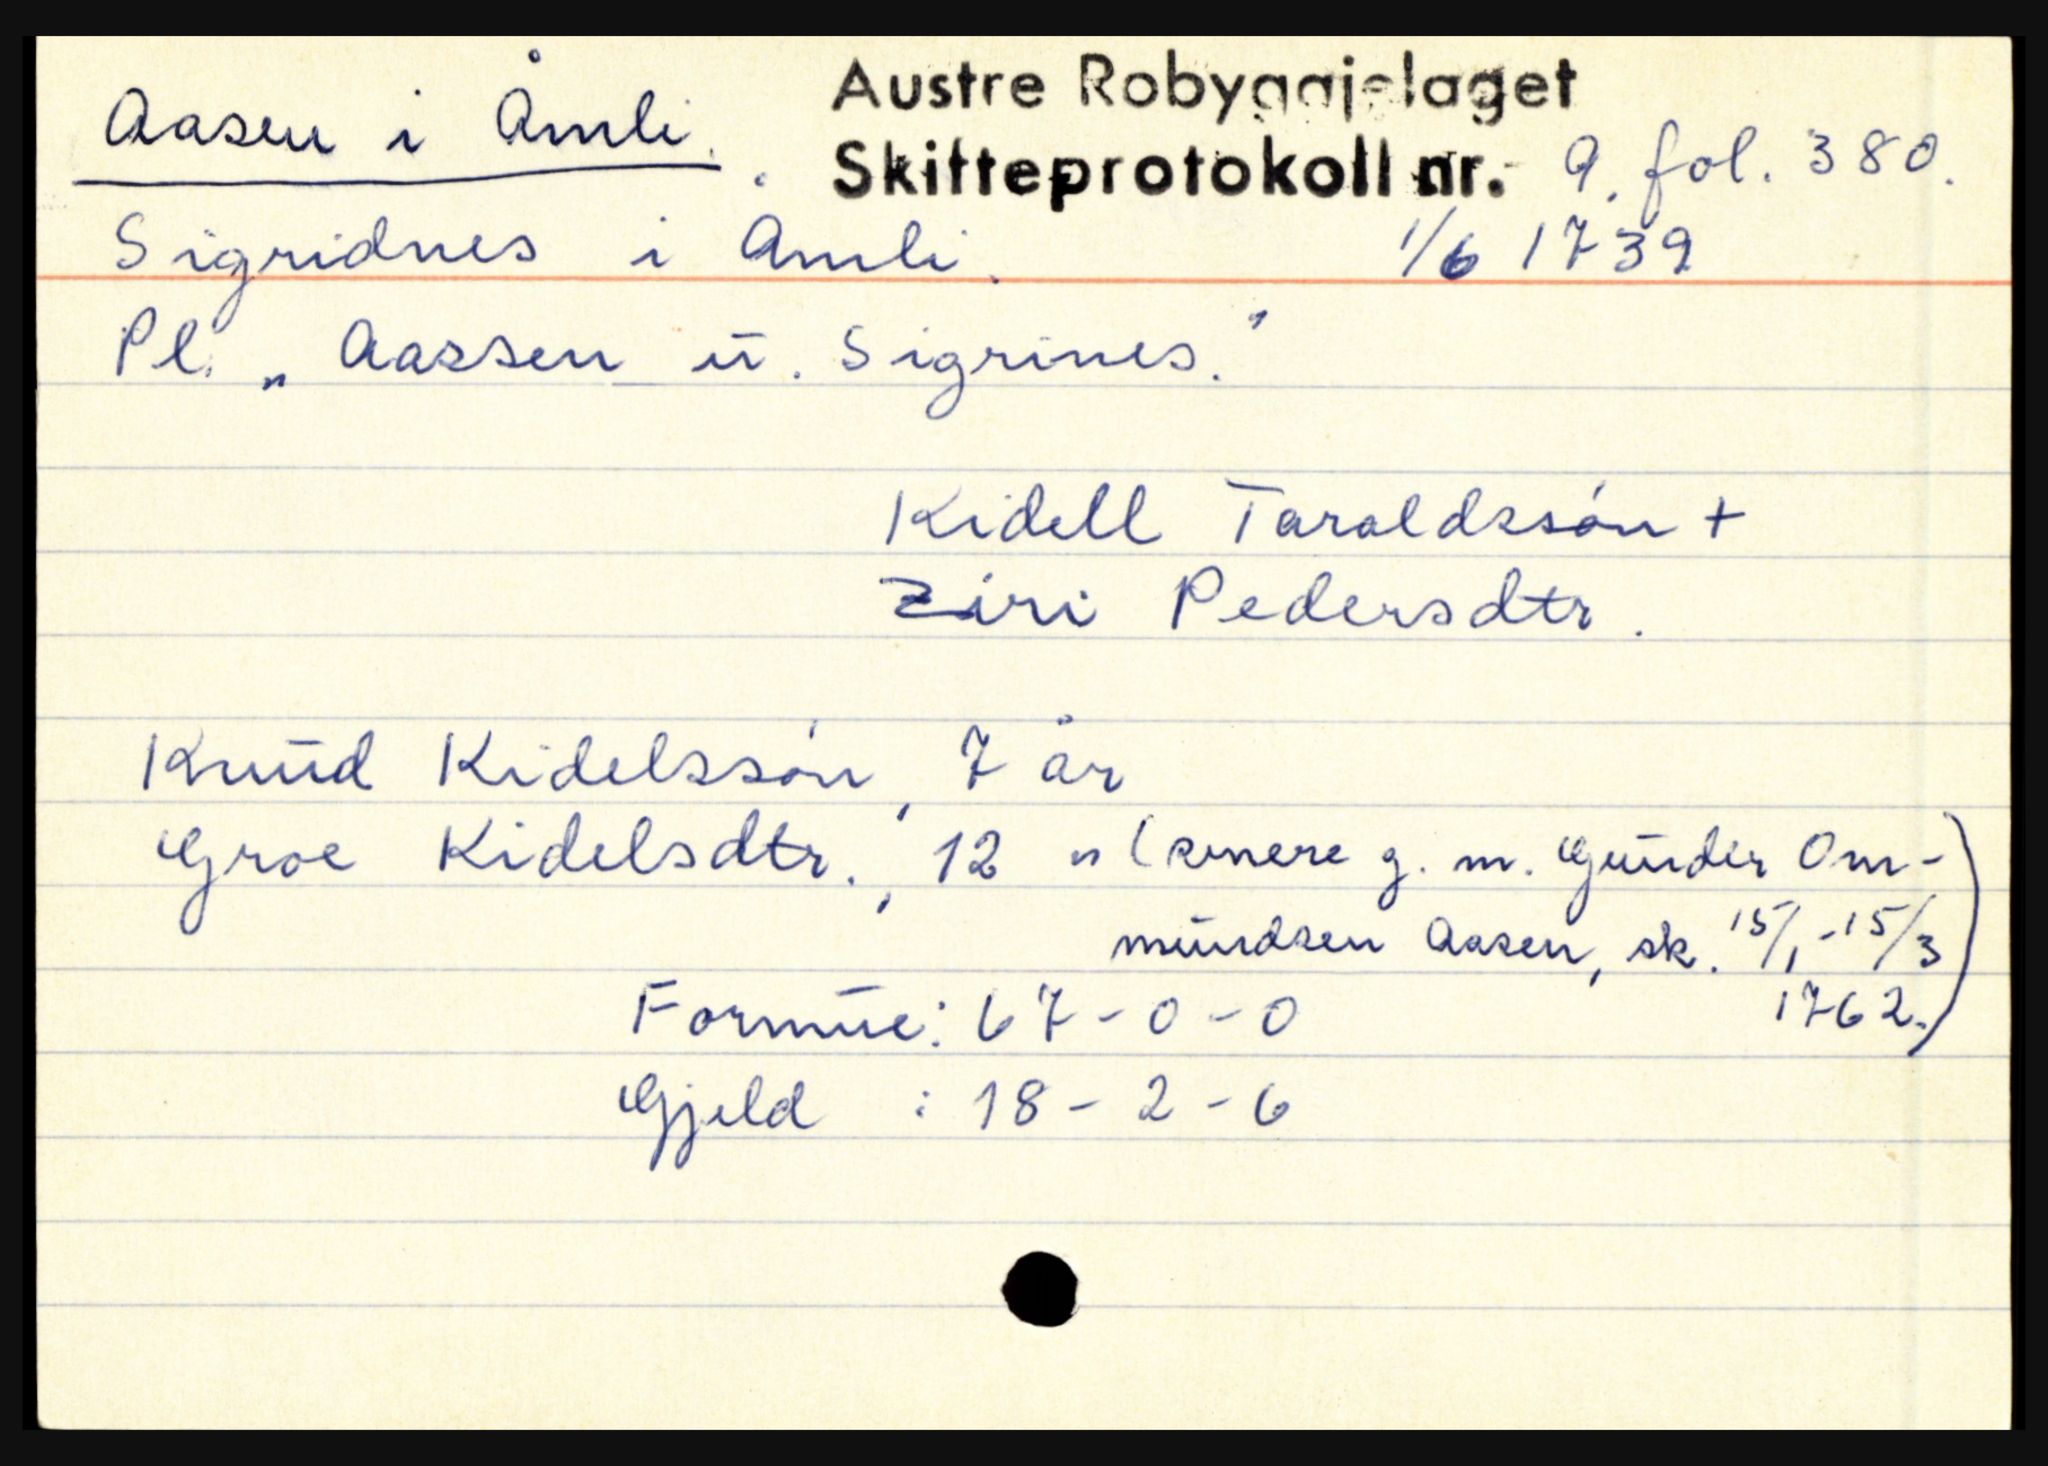 Aasen i Åmli.
Austre Robyggjelaget
Skifteprotokoll nr. 9. fol. 380.
Sigridnes i Amli. 1/6 1739
Pl. „Aassen u. Sigrines."
Kidell Taraldssón +
Ziri Pedersdtr.
Knud Kidelssón, 7 år
Groe Kidelsdtr., 12 " (senere g. m. Gunder Om-
mundsen Aasen, sk. 15/1-15/3
1762.)
Formue: 67-0-0
Gjeld : 18-2-6